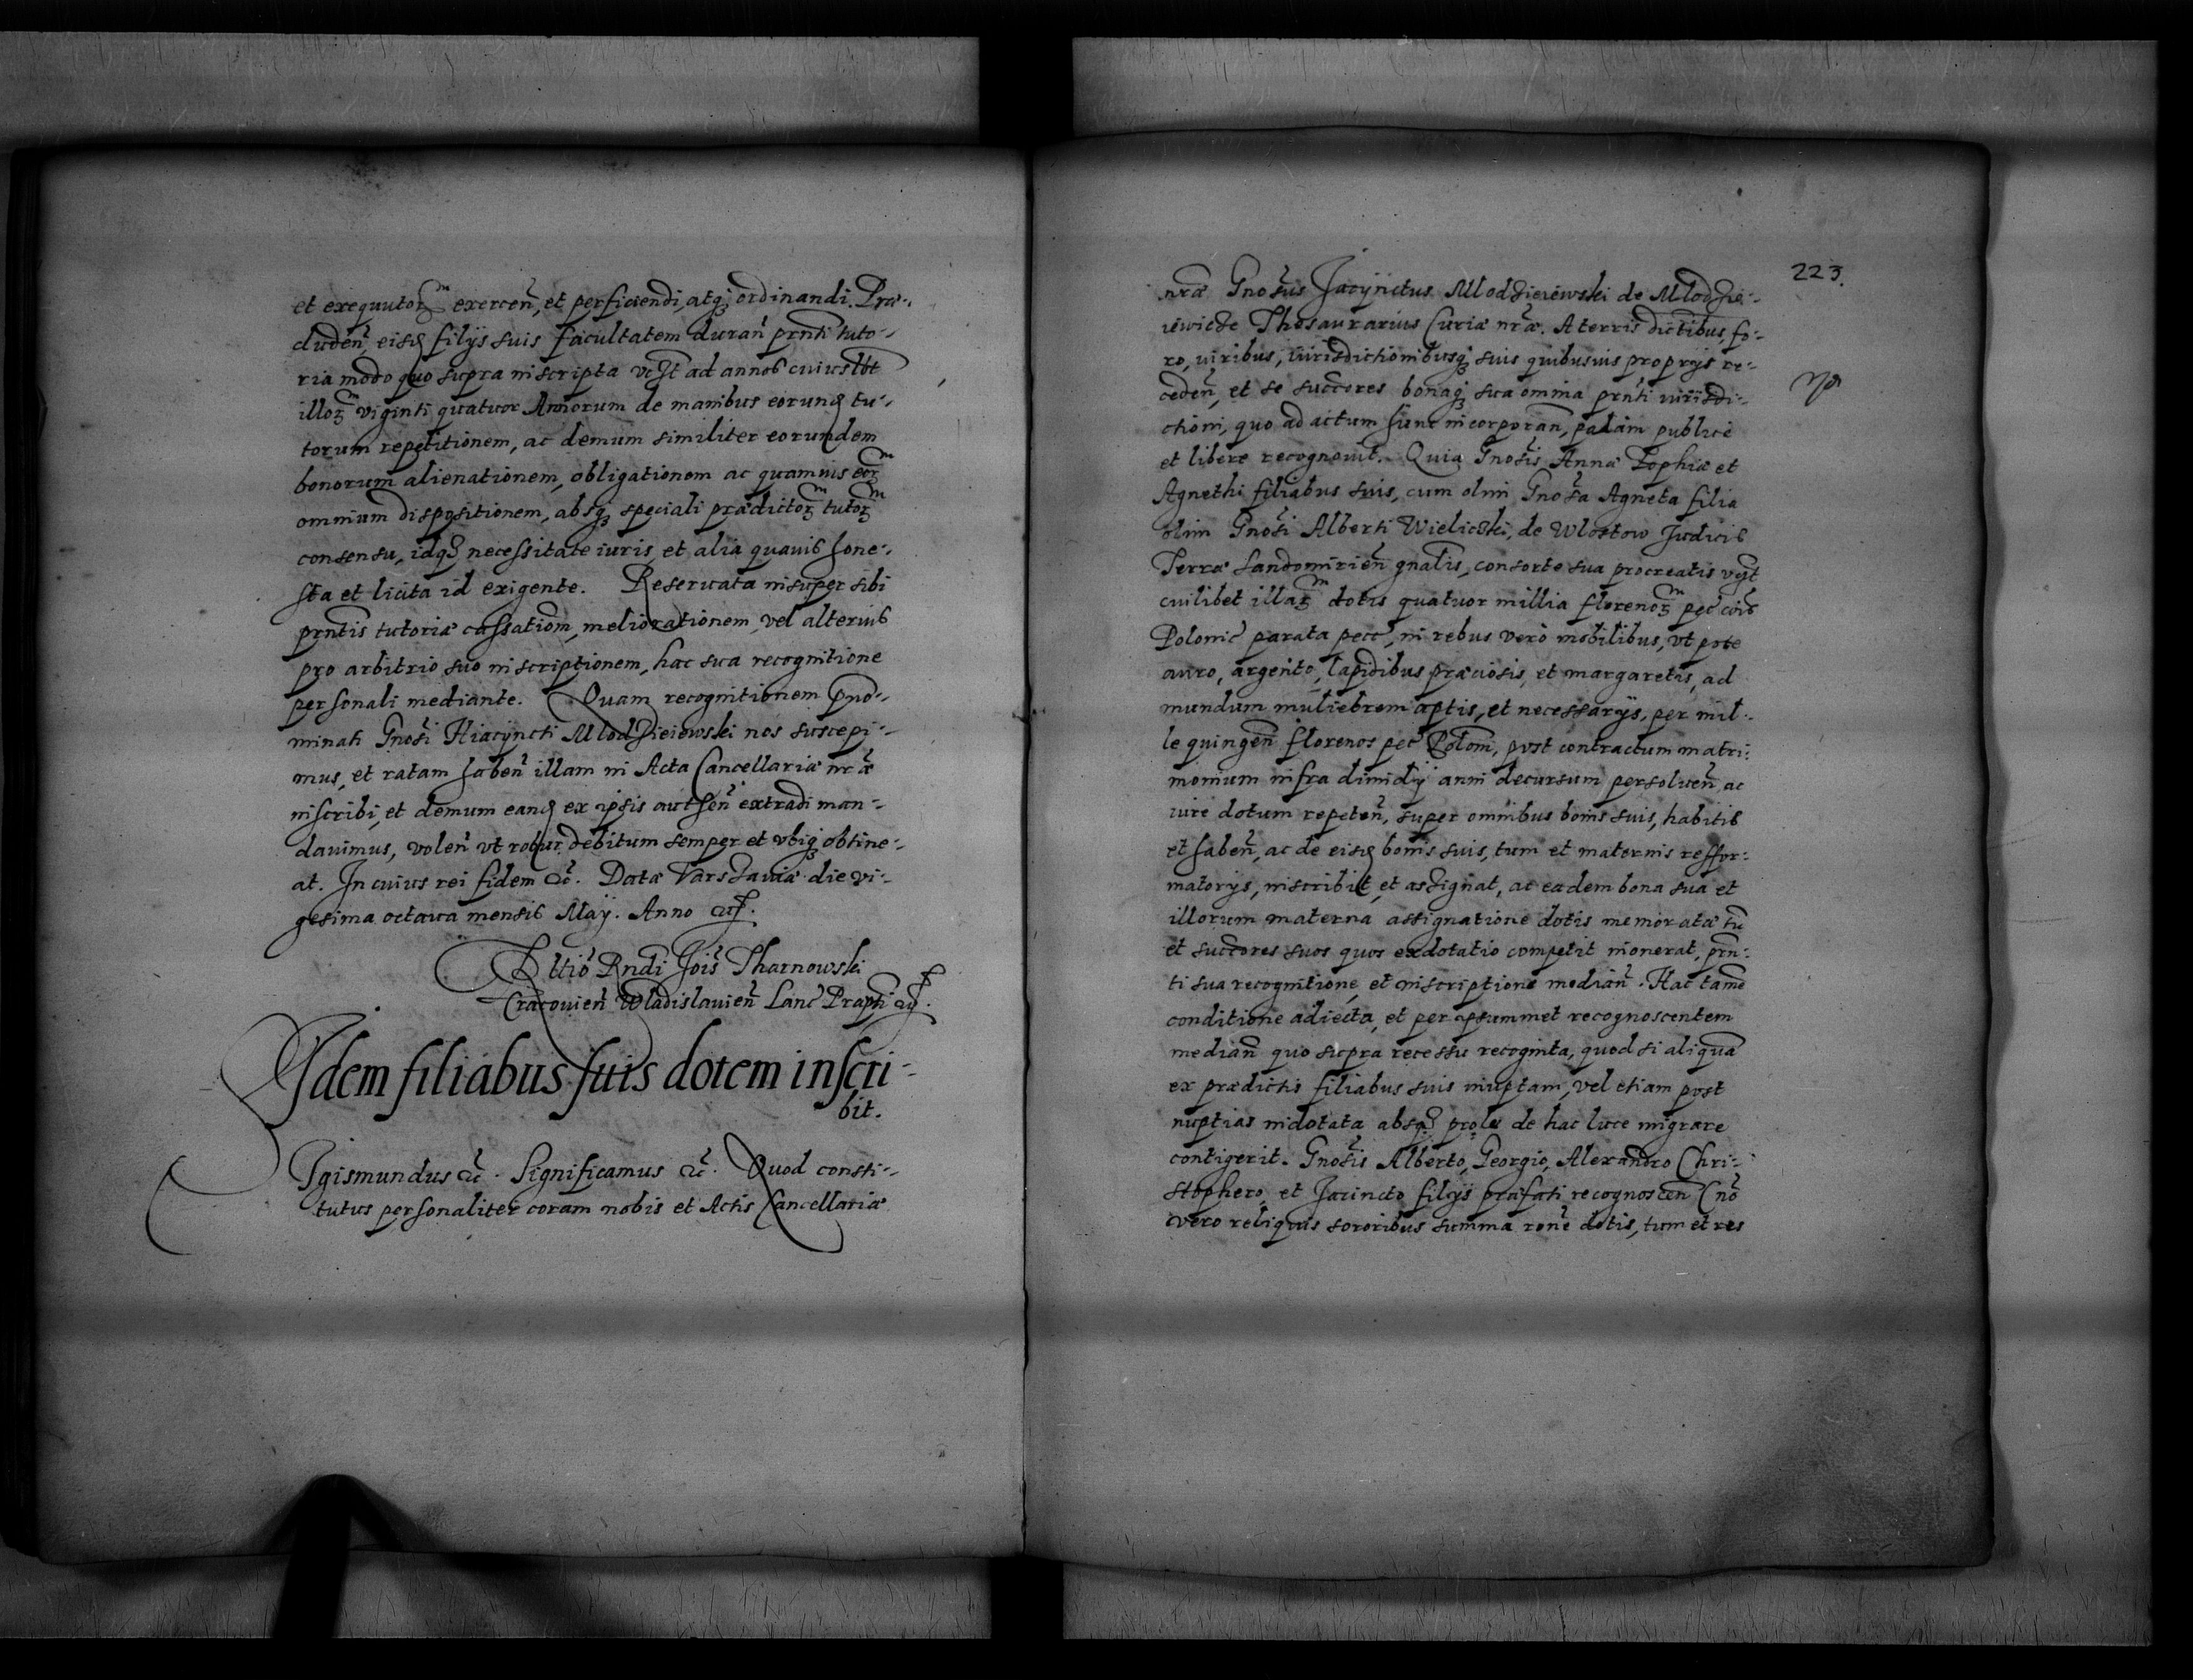 et exequutorum exercen̄, et perficiendi, atq; ordinandi. Præ-
cluden̄ eisd filijs suis facultatem duran̄ prnti tuto-
ria modo quo supra inscripta vczt ad annos cuiuslibt
illorum viginti quatuor Annorum de manibus eorund tu-
torum repetitionem, ac demum similiter eorundem
bonorum alienationem, obligationem ac quamuis eorum
omnium dispositionem, absq; speciali prædictorum tutorum
consensu, idq; necessitate iuris, et alia quauis hone-
sta et licita id exigente. Reseruata insuper sibi
prntis tutoriæ cassatiom, meliorationem, vel alterius
pro arbitrio suo inscriptionem, hac sua recognitione
personali mediante. Quam recognitionem pno-
minati Gnosi Hiacyncti Mlodzieiowski nos suscepi-
mus, et ratam haben̄ illam in Acta Cancellariæ nræ
inscribi, et demum eand ex ipsis authen̄ extradi man-
dauimus, volen̄ vt robur debitum semper et vbiq; obtine-
at. In cuius rei fidem &c. Datæ Varschauiæ die vi-
gesima octaua mensis Maij. Anno &c.
Rltio Rndi Jois Tharnowski
Cracouien̄ Wladislauien̄ Lanc Præpti &c.
Idem filiabus suis dotem inscri-
bit.
Sigismundus &c. Significamus &c. Quod consti-
tutus personaliter coram nobis et Actis Cancellariæ
223.
nræ Gnosus Jacynctus Mlodzieiewski de Mlodzie-
iewicze Thesaurarius Curiæ nræ. A terris dictibus, fo-
ro, viribus, iurisdictionibusq; suis quibusuis proprijs re-
ceden̄, et se succores bonaq; sua omnia prnti iurisdi-
ctioni, quo ad actum hunc incorporan̄, palam publice
et libere recognouit. Quia Gnosis Annæ Zophiæ et
Agnethi filiabus suis, cum olim Gnosa Agneta filia
olim Gnosi Alberti Wieliczki, de Wlostow Judicis
Terræ Sandomirien̄ gnalis, consorte sua procreatis vczt
cuilibet illarum dotis quatuor millia florenorum pec cois
Polonic parata pecc, in rebus verò mobilibus, vt pote
auro, argento, lapidibus præciosis, et margaretis, ad
mundum muliebrem aptis, et necessarijs, per mil-
le quingen̄ florenos pec Polom, post contractum matri-
monium infra dimidij anni decursum persoluen̄, ac
iure dotum repeten̄, super omnibus bonis suis, habitis
et haben̄, ac de eisd bonis suis, tum et maternis reffor-
matorijs, inscribit, et aszignat, ac eadem bona sua et
illorum materna assignatione dotis memoratæ tū
et succores suos quos exdotatio competit inonerat, prn-
ti sua recognitione, et inscriptione median̄. Hac tamē
conditione adiecta, et per ipsummet recognoscentem
median̄ quo supra recessu recoginta, quod si aliquā
ex prædictis filiabus suis inuptam, vel etiam post
nuptias indotata absq; prole de hac luce migrare
contigerit. Gnosis Alberto, Georgio, Alexandro Chri-
stophero, et Jacincto filijs præfati recognoscen̄ Cno
vero reliquis sororibus summa rone dotis, tum et res